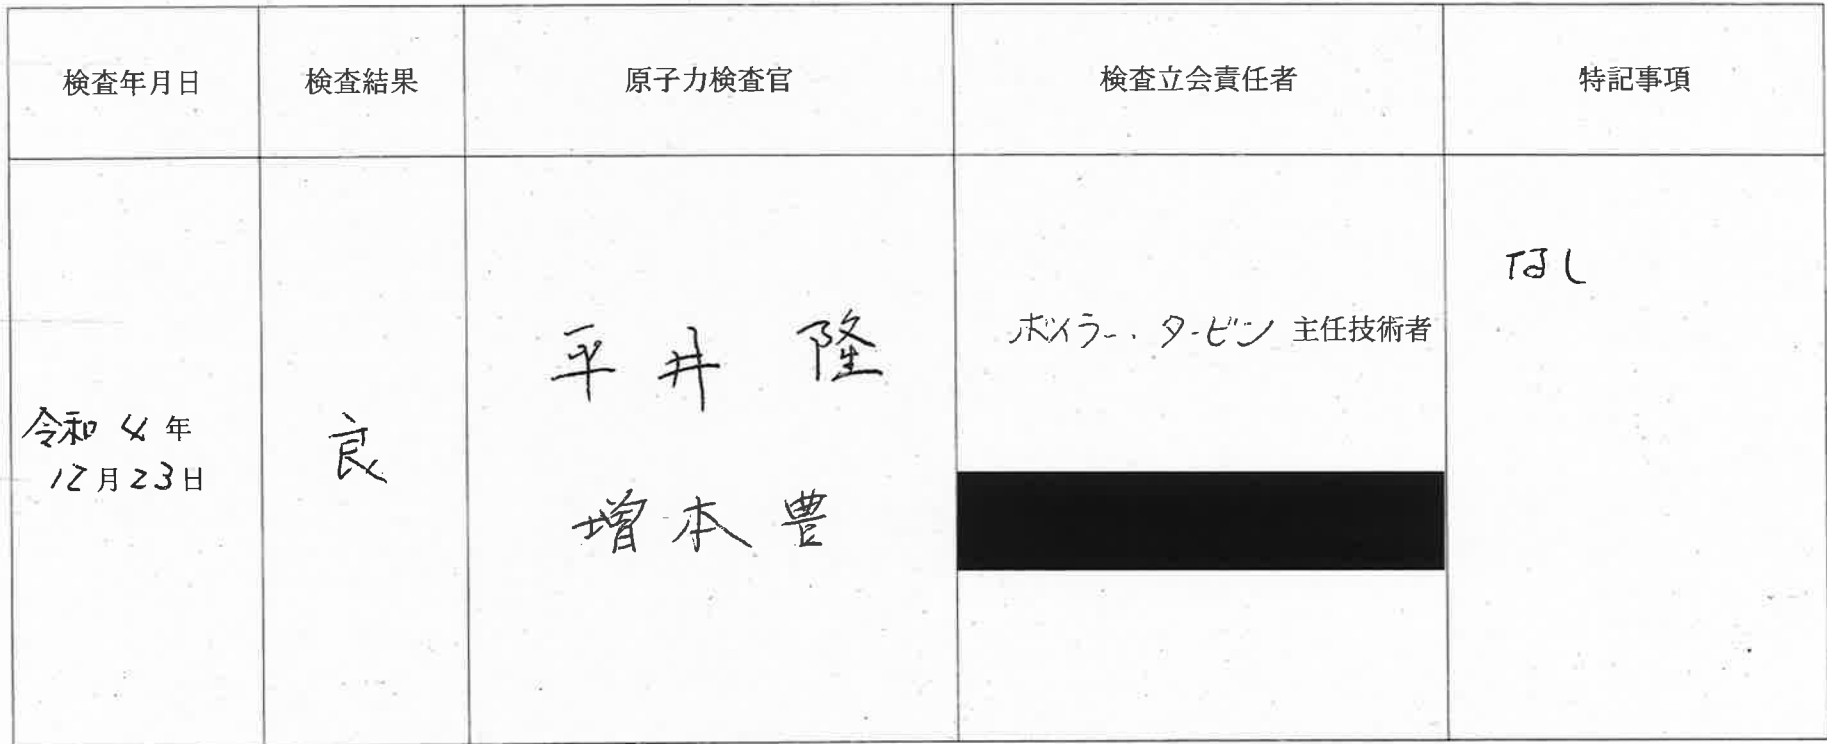 検査年月日
検査結果
原子力検査官
検査立会責任者
特記事項
令和4年
12月23日
良
平井 隆
増本 豊
ボイラー・タービン 主任技術者
なし